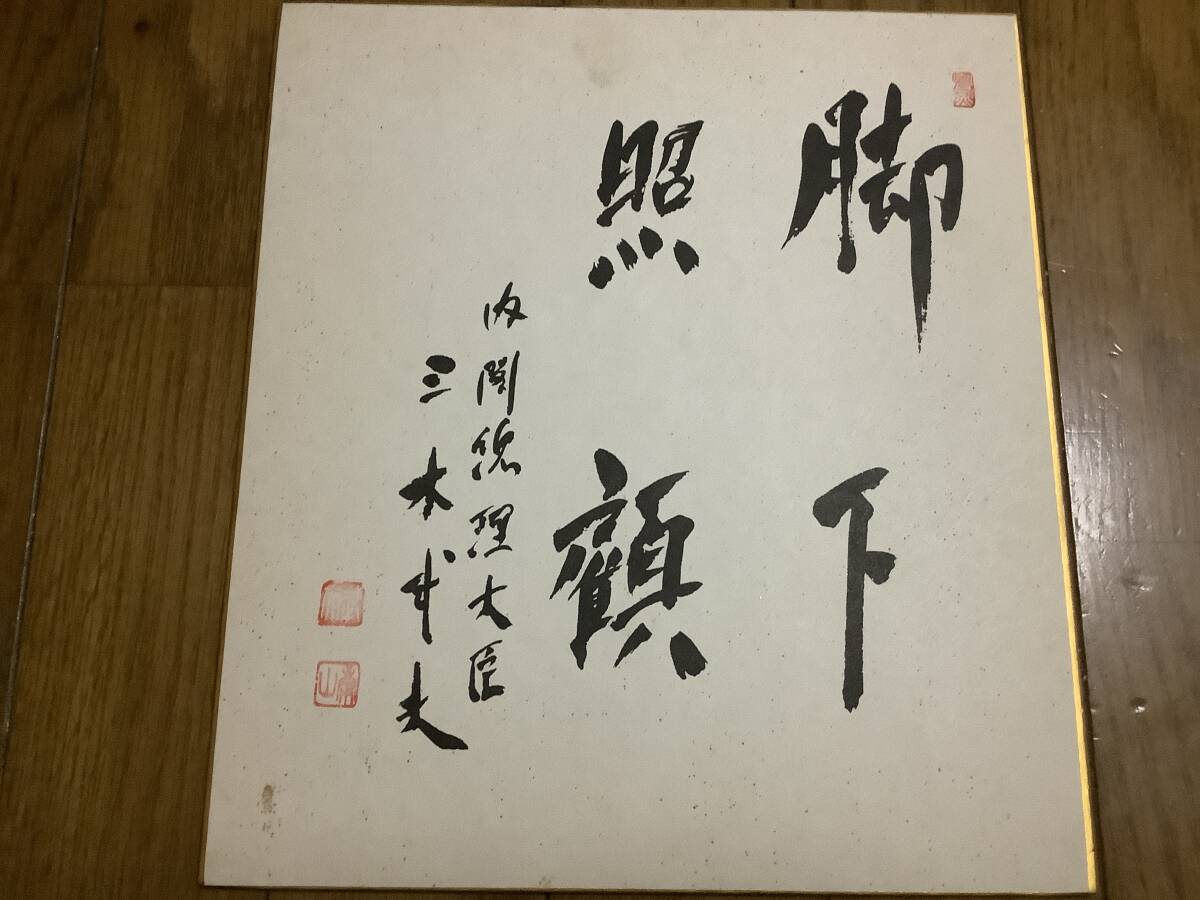 脚下
照顧
内閣総理大臣
三木武夫